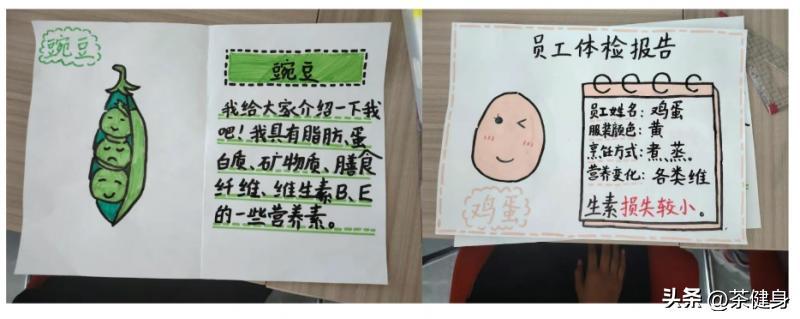 豌豆
豌豆
我给大家介绍一下我
吧！我具有脂肪、蛋
白质、矿物质、膳食
纤维、维生素B、E
的一些营养素。
员工体检报告
员工姓名：鸡蛋
服装颜色：黄
烹饪方式：煮、蒸。
营养变化：各类维
生素损失较小。
鸡蛋
头条 @茶健身